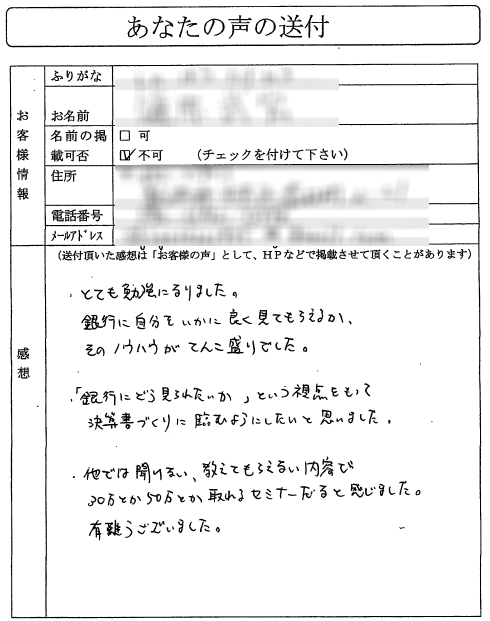 あなたの声の送付
ふりがな
お名前
名前の掲載可否
□ 可
☑ 不可 (チェックを付けて下さい)
お客様情報
住所
電話番号
メールアドレス
(送付頂いた感想は「お客様の声」として、HPなどで掲載させて頂くことがあります)
感想
・とても勉強になりました。
銀行に自分をいかに良く見てもらえるか、
そのノウハウがてんこ盛りでした。
・「銀行にどう見られたいか」という視点をもって
決算書づくりに臨むようにしたいと思いました。
・他では聞けない、教えてもらえない内容で
30万とか50万とか取れるセミナーだなと感じました。
有難うございました。